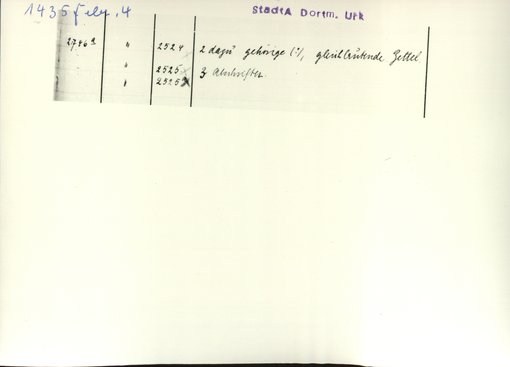 1435 Febr. 4
StadtA Dortm. Urk
2746a " 2524 2 dazu gehörige (?), gleichlautende Zettel
" 2525 3 Abschriften.
" 2525a